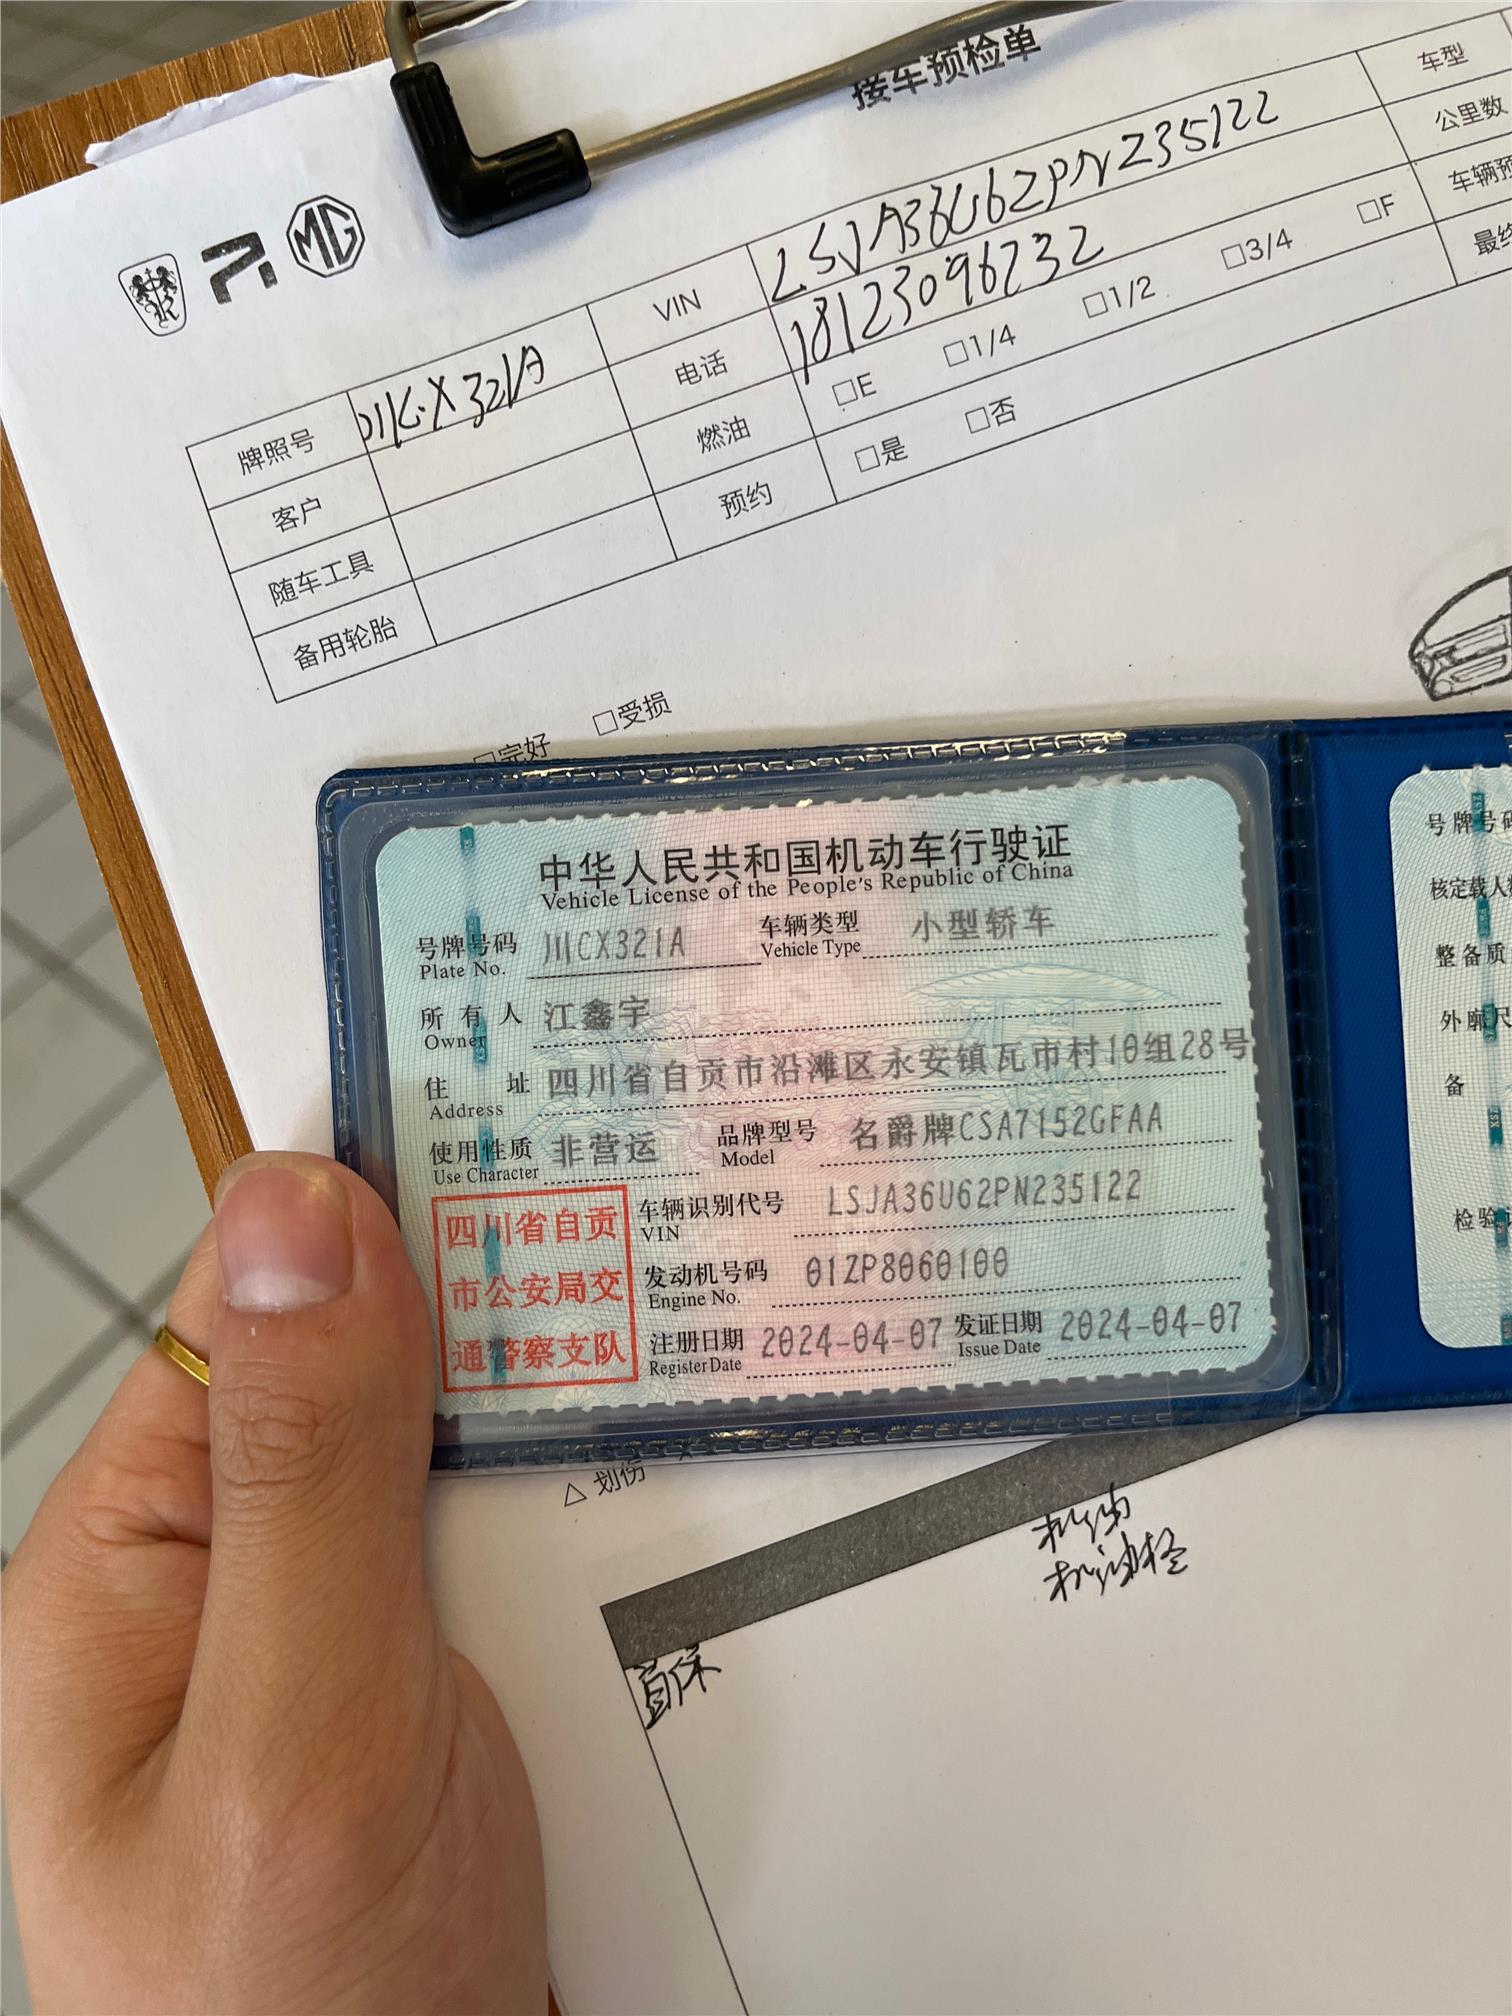 接车预检单
MG
牌照号 川C·X321A VIN LSJA36U62PN235122 车型
客户 电话 18123096732 公里数
随车工具 燃油 □E □1/4 □1/2 □3/4 □F 车辆预
备用轮胎 预约 □是 □否 最终
□完好 □受损
中华人民共和国机动车行驶证
Vehicle License of the People's Republic of China
号牌号码 川CX321A 车辆类型 小型轿车
Plate No. Vehicle Type
所有人 江鑫宇
Owner
住址 四川省自贡市沿滩区永安镇瓦市村10组28号
Address
使用性质 非营运 品牌型号 名爵牌CSA7152GFAA
Use Character Model
四川省自贡
市公安局交
通警察支队
车辆识别代号 LSJA36U62PN235122
VIN
发动机号码 01ZP8060100
Engine No.
注册日期 2024-04-07 发证日期 2024-04-07
Register Date Issue Date
号牌号码
核定载人
整备质
外廓尺
备
检验
△ 划伤
机油
机油格
首保